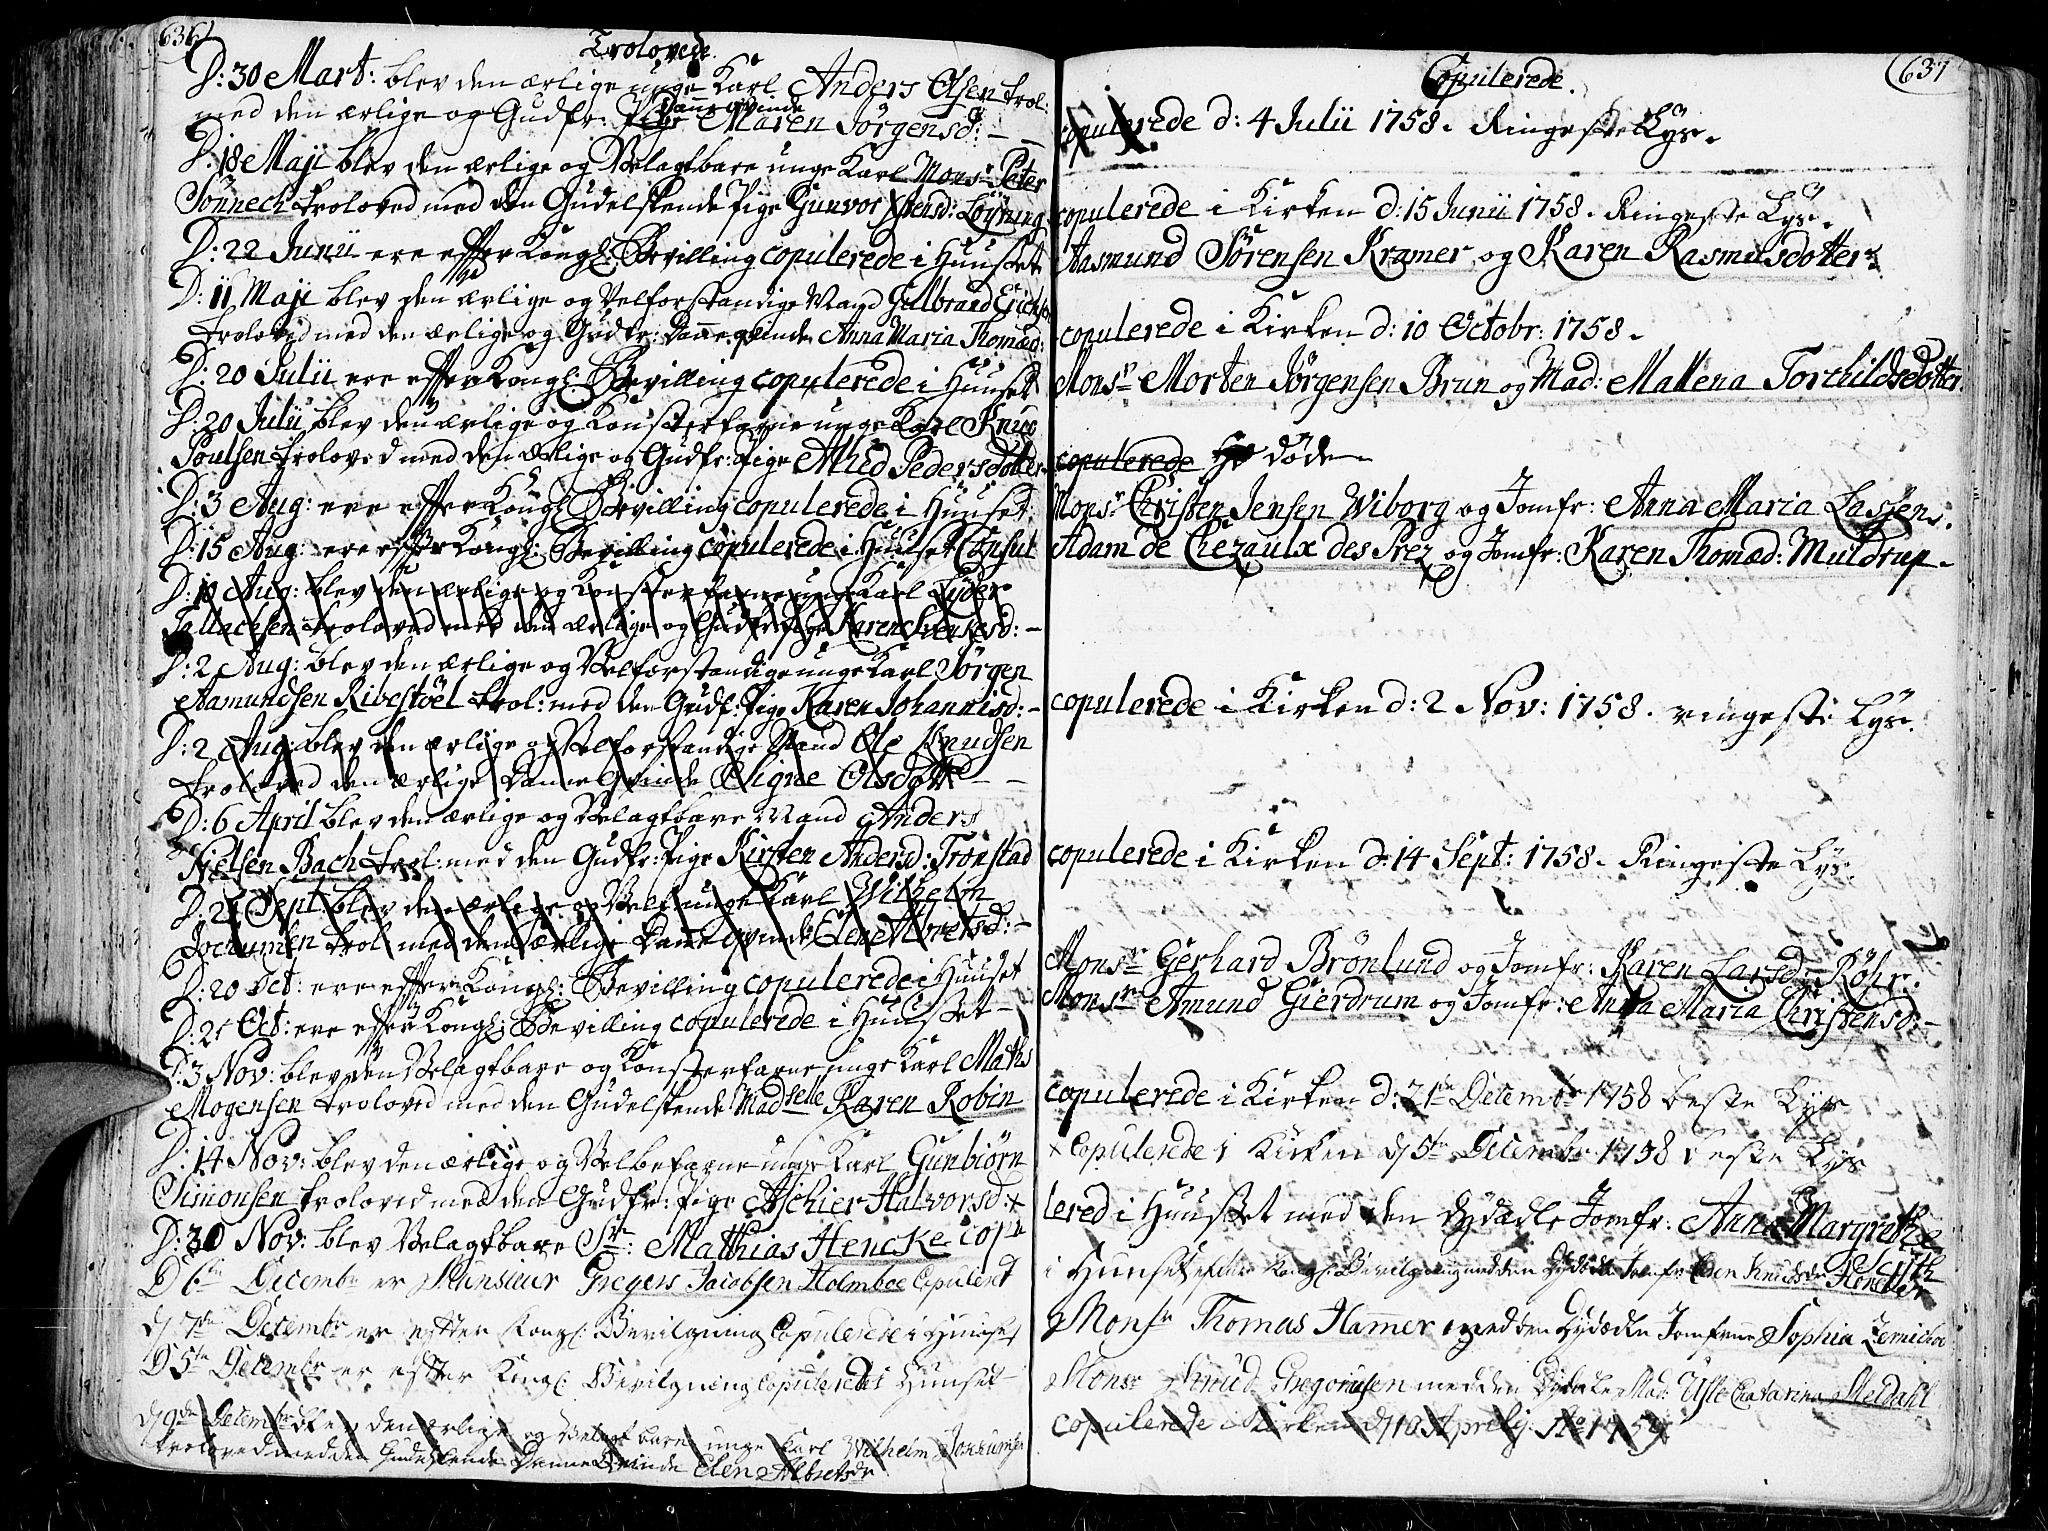 636
Trolovede
D: 30 Mart: blev den ærlige unge Karl Anders Olsen trol:
Danneqvinde
med den ærlige og Gudfr: Pige Maren Jörgensd: -
D: 18 Maji blev den ærlige og Velagtbare unge Karl Monsr Peter
Tönnech troloved med den Gudelskende Pige Gunvor Löyning
D: 22 Junii ere efter Kongl: Bevilling copulerede i Huuset
D: 11 Maji blev den ærlige og Velforstandige Mand Gulbrand Erichs:
troloved med den ærlige og Gudfr: Danneqvinde Anna Maria Thomæd:
D: 20 Julii ere efter Kongl: Bevilling copulerede i Huuset
D: 20 Julii blev den ærlige og Konsterfarne unge Karl Knud
Poulsen troloved med den ærlige og Gudfr: Pige Alhed Pedersdotter
D: 3 Aug: ere efter Kongl: Bevilling copulerede i Huuset
D: 15 Aug: ere efter Kongl: Bevilling copulerede i Huuset Consul
D: 10 Aug: blev den ærlige og Konsterfarne unge Karl Lyder
troloved med den ærlige og Gudfr: Pige Karen
D: 2 Aug: blev den ærlige og Velforstandige unge Karl Jörgen
Aamundsen Ribestöel trol: med den Gudf: Pige Karen Johannisd: -
D: 2 Aug: blev den ærlige og Velforstandige Mand Ole Knudsen
troloved den ærlige Danne Qvinde Signe Olsdotter
D: 6 April blev den ærlige og Velagtbare Mand Anders
Nielsen Bach trol: med den Gudfr: Pige Kirsten Andersd: Tronstad
D: 21 Sept blev den ærlige og Velf: unge Karl Wilhelm
Jochumsen trol med den ærlige Danne qvinde Elen Albretsd: -
D: 20 Oct: ere efter Kongl: Bevilling copulerede i Huuset
D: 21 Oct: ere efter Kongl: Bevilling copulerede i Huuset -
D: 3 Nov: blev den Velagtbare og Konsterfarne unge Karl Maths
Mogensen troloved med den Gudelskende Madselle Karen Robin
D: 14 Nov: blev den ærlige og Velbefarne unge Karl Gunbiörn
Simonsen troloved med den Gudfr: Pige Aschier Halvorsd: +
D: 30 Nov: blev Velagtbare Sr: Matthias Hencke copu
D 6te Decembr er Munsieur Gregers Jacobsen Holmboe Copulert
d 7de Decembr er efter Kongl: Bevilgning Copulerede i Huuset
D 5te Decembr er efter Kongl: Bevilgning copulerede i Huuset
d 9de Decembr blev den ærlige og Velagtbare unge Karl Wilhelm Jochumsen
troloved med den Gudelskende Danne Qvinde Elen Albretsdr
637
Copulerede.
copulerede d: 4 Julii 1758. Ringeste Lys.
copulerede i Kirken d: 15 Junii 1758. Ringeste Lys.
Aasmund Sörensen Kramer og Karen Rasmusdotter
copulerede i Kirken d: 10 Octobr: 1758.
Monsr Morten Jörgensen Brun og Mad: Mallena Torchildsdotter.
copulerede döde
Monsr Christen Jensen Wiborg og Jomfr: Anna Maria Lassens.
Adam de Chezaulx des Prez og Jomfr: Karen Thomæd: Muldrup.
copulerede i Kirken d: 2 Nov: 1758. ringeste Lys.
copulerede i Kirken d: 14 Sept: 1758. Ringeste Lys.
Monsr Gerhard Brönlund og Jomfr: Karen Larsd: Röhr.
Monsr Amund Gierdrum og Jomfr: Anna Maria Christensd: -
copulerede i Kirken d: 21de Decembr 1758 beste Lys
+ Copulerede i Kirken d 5te Decembr 1758 beste Lys
lered i Huuset med den dydædle Jomfr: Anna Margrethe
i Huuset efter Kongl: Bevilgning med den Dydædle Jomfr Elen Knudsdr
Monsr Thomas Hamer med den Dydædle Jomfrue Sophia
Monsr Knud Gregoriusen med den Dydædle Mad: Chatarina Meldahl
copulerede i Kirken d 18 Aprilij Ao 1759